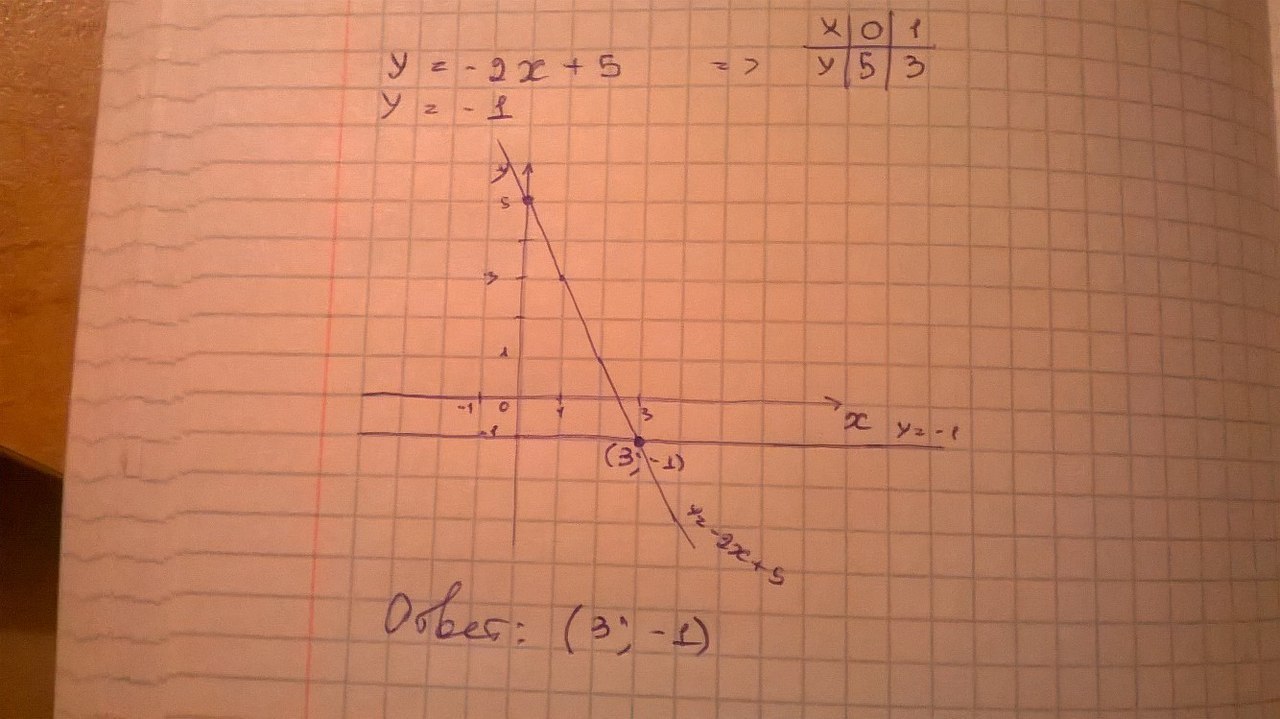 y = -2x + 5 => x 0 1
y 5 3
y = -1
y
5
3
1
-1 0 1 3
x y = -1
-1
(3; -1)
y = -2x + 5
Ответ: (3; -1)